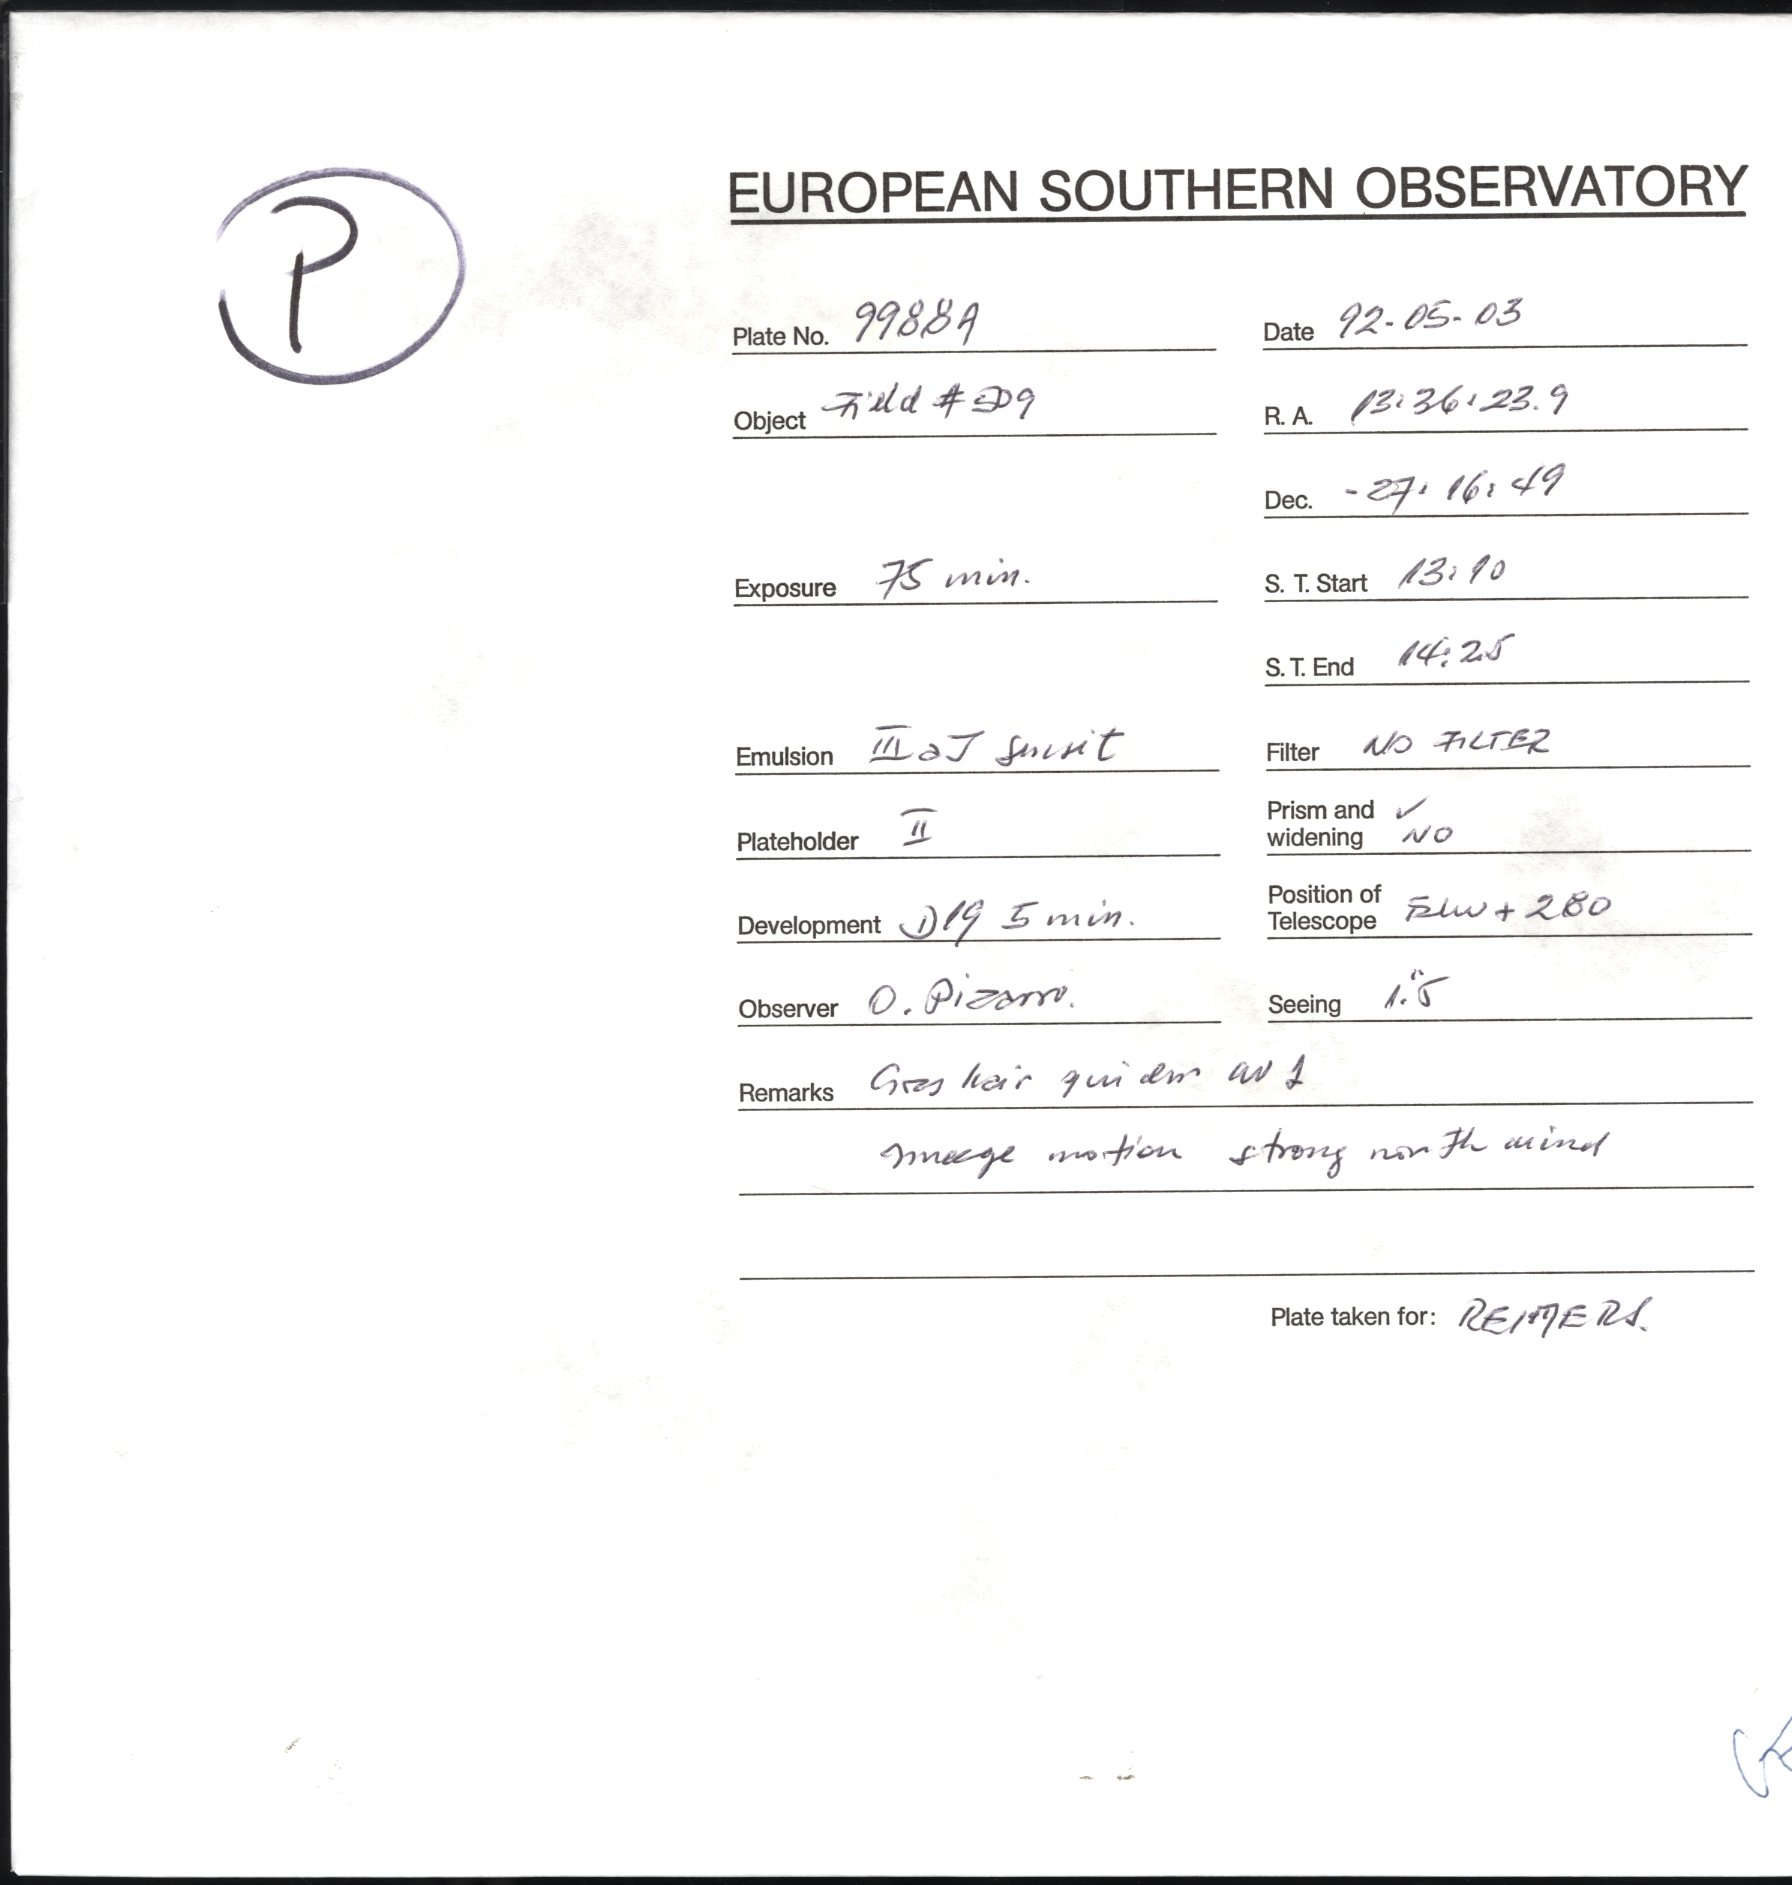 P
EUROPEAN SOUTHERN OBSERVATORY
Plate No. 9988A Date 92-05-03
Object Field # 509 R. A. 13:36:23.9
Dec. -27:16:49
Exposure 75 min. S. T. Start 13:10
S. T. End 14:25
Emulsion III aJ sensit Filter NO FILTER
Plateholder II Prism and ✓
widening NO
Development D19 5 min. Position of
Telescope + 280
Observer O. Pizarro. Seeing 1."5
Remarks hair
image motion strong north wind
Plate taken for: REIMERS.